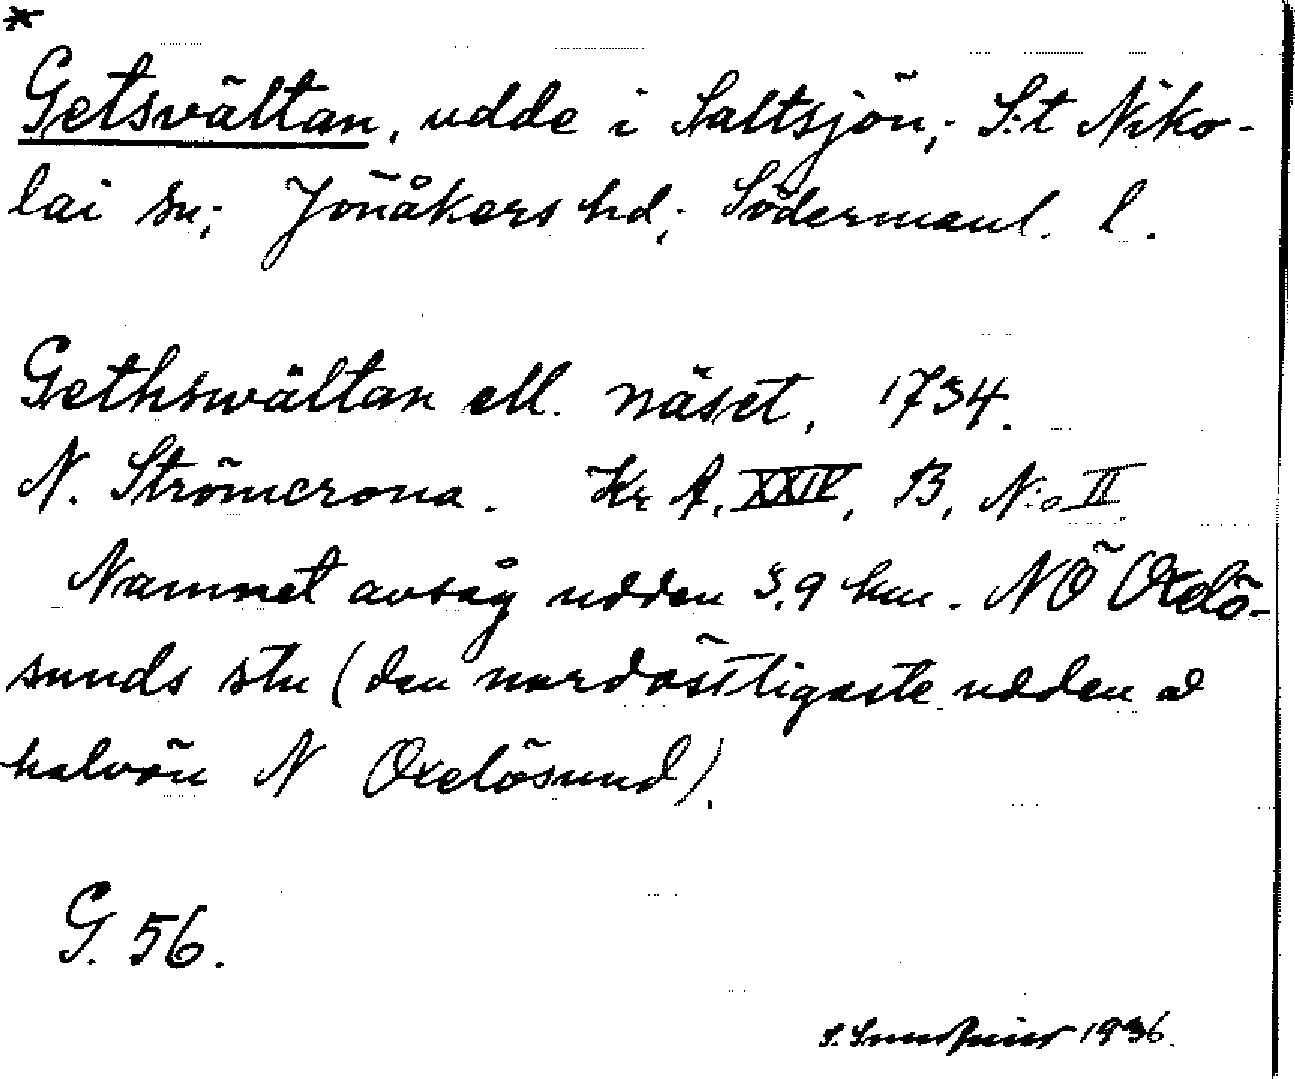 *
Getsvältan, udde i Saltsjön; S:t Niko-
lai sn; Jönåkers hd; Södermanl. l.
Gethswältan ell. näset, 1734.
N. Strömcrona. Kr A, XXIV, B, N:o II
Namnet avsåg udden 3,9 km. NÖ Oxelö-
sunds stn (den nordöstligaste udden å
halvön N Oxelösund).
G. 56.
S. 1936.